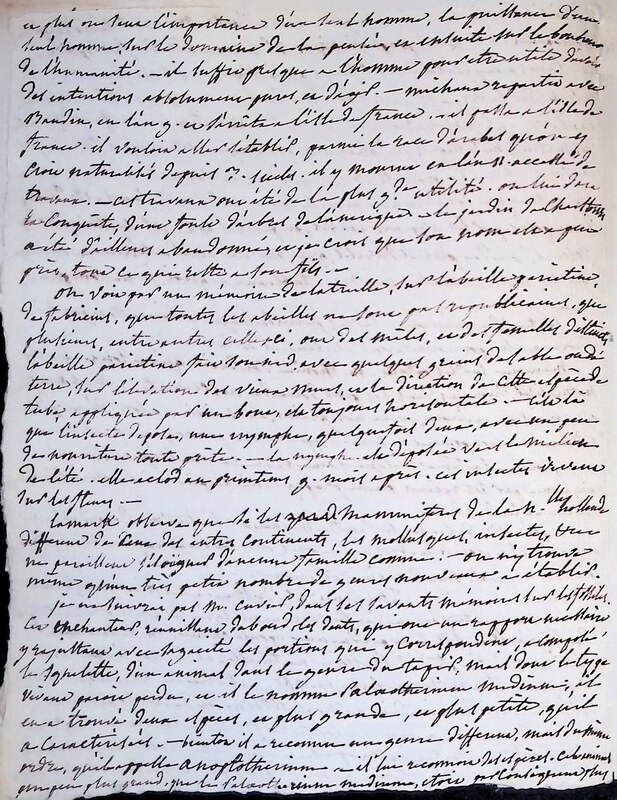 ce plus ou l'importance d'un seul homme, la puissance d'un
seul homme sur le domaine de la pensée, et ensuite sur le bonheur
de l'humanité. — il suffit presque à l'homme pour être utile d'avoir
des intentions absolument pures, — michaux repartit avec
Baudin, en l'an 9. et s'arrêta à l'isle de france. il passa à l'île de
france. il vouloit aller s'établir, parmi la race d'arabes qu'on y
croit naturalisés depuis siècles. il y mourut en l'an 11. accablé de
travaux. — ces travaux ont été de la plus gde utilité. on lui doit
la Conquête, d'une foule d'arbres de l'amérique. le jardin de Charlestown
a été d'ailleurs abandonné, et je crois que son nom est à peu
près, tout ce qui reste à son fils. —
On voit par un mémoire de latreille, sur l'abeille parietine,
de fabricius, que toutes les abeilles ne sont pas republicaines, que
plusieurs, entre autres celle-ci, ont des mâles, et des femelles
l'abeille parietine fait son nid, avec quelques grains de sable ou de
terre, sur l'élévation des vieux murs, et la direction de cette espèce de
tube, appliquée par un bout, est toujours horisontale. — c'est là
que l'insecte dépose, une nymphe, quelquefois deux, avec un peu
de nourriture toute prête. — la nymphe est déposée vers le milieu
de l'été. elle éclot au printems 9. mois après. ces insectes vivent
sur les fleurs. —
lamark observe que si les mammifères de la n. hollande
different de ceux des autres continents, les mollusques, insectes, &c
ne paroissent s'éloigner d'aucune famille connue. — on n'y trouve
même qu'un très petit nombre de genres nouveaux à établir.
je ne suivrai pas M. Cuvier, dans ses savants mémoires sur les fossiles.
Cet enchanteur, réunissant, d'abord les dents, qui ont un rapport nécessaire
y rajustant avec sagacité les portions que y correspondent, a composé
le squelette, d'un animal dans le genre du tapir, mais dont le type
vivant paroit perdu, et il le nomme Palaeotherium medium, il
en a trouvé deux espèces, et plus grande, et plus petite, qu'il
a caractérisées. — bientôt il a reconnu un genre different, mais du même
ordre, qu'il appelle anoplotherium — il lui reconnoit des espèces. Cet animal
un peu plus grand, que le Palaeotherium medium, étoit par conséquent plus